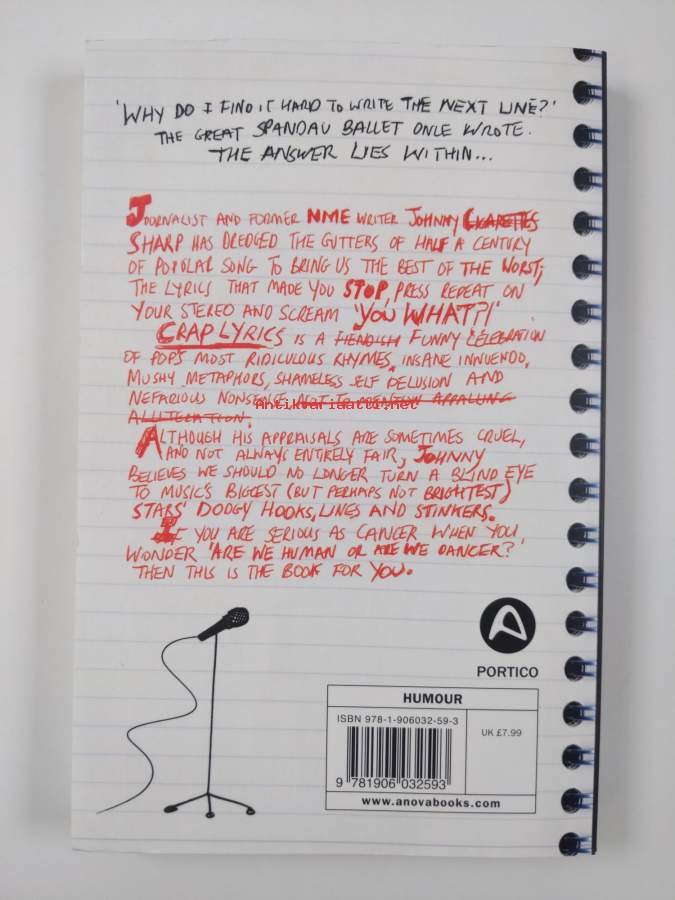 'WHY DO I FIND IT HARD TO WRITE THE NEXT LINE?'
THE GREAT SPANDAU BALLET ONCE WROTE.
THE ANSWER LIES WITHIN...
JOURNALIST AND FORMER NME WRITER JOHNNY CIGARETTES
SHARP HAS DREDGED THE GUTTERS OF HALF A CENTURY
OF POPULAR SONG TO BRING US THE BEST OF THE WORST;
THE LYRICS THAT MADE YOU STOP, PRESS REPEAT ON
YOUR STEREO AND SCREAM 'YOU WHAT?!'
CRAP LYRICS IS A FIENDISH FUNNY CELEBRATION
OF POP'S MOST RIDICULOUS RHYMES, INSANE INNUENDO,
MUSHY METAPHORS, SHAMELESS SELF DELUSION AND
NEFARIOUS NONSENSE NOT TO MENTION APPALLING
ALLITERATION.
Antikvariaatti.net
ALTHOUGH HIS APPRAISALS ARE SOMETIMES CRUEL,
AND NOT ALWAYS ENTIRELY FAIR, JOHNNY
BELIEVES WE SHOULD NO LONGER TURN A BLIND EYE
TO MUSIC'S BIGGEST (BUT PERHAPS NOT BRIGHTEST)
STARS' DODGY HOOKS, LINES AND STINKERS.
IF YOU ARE SERIOUS AS CANCER WHEN YOU
WONDER 'ARE WE HUMAN OR ARE WE DANCER?'
THEN THIS IS THE BOOK FOR YOU.
PORTICO
HUMOUR
ISBN 978-1-906032-59-3
UK £7.99
9 781906 032593
www.anovabooks.com